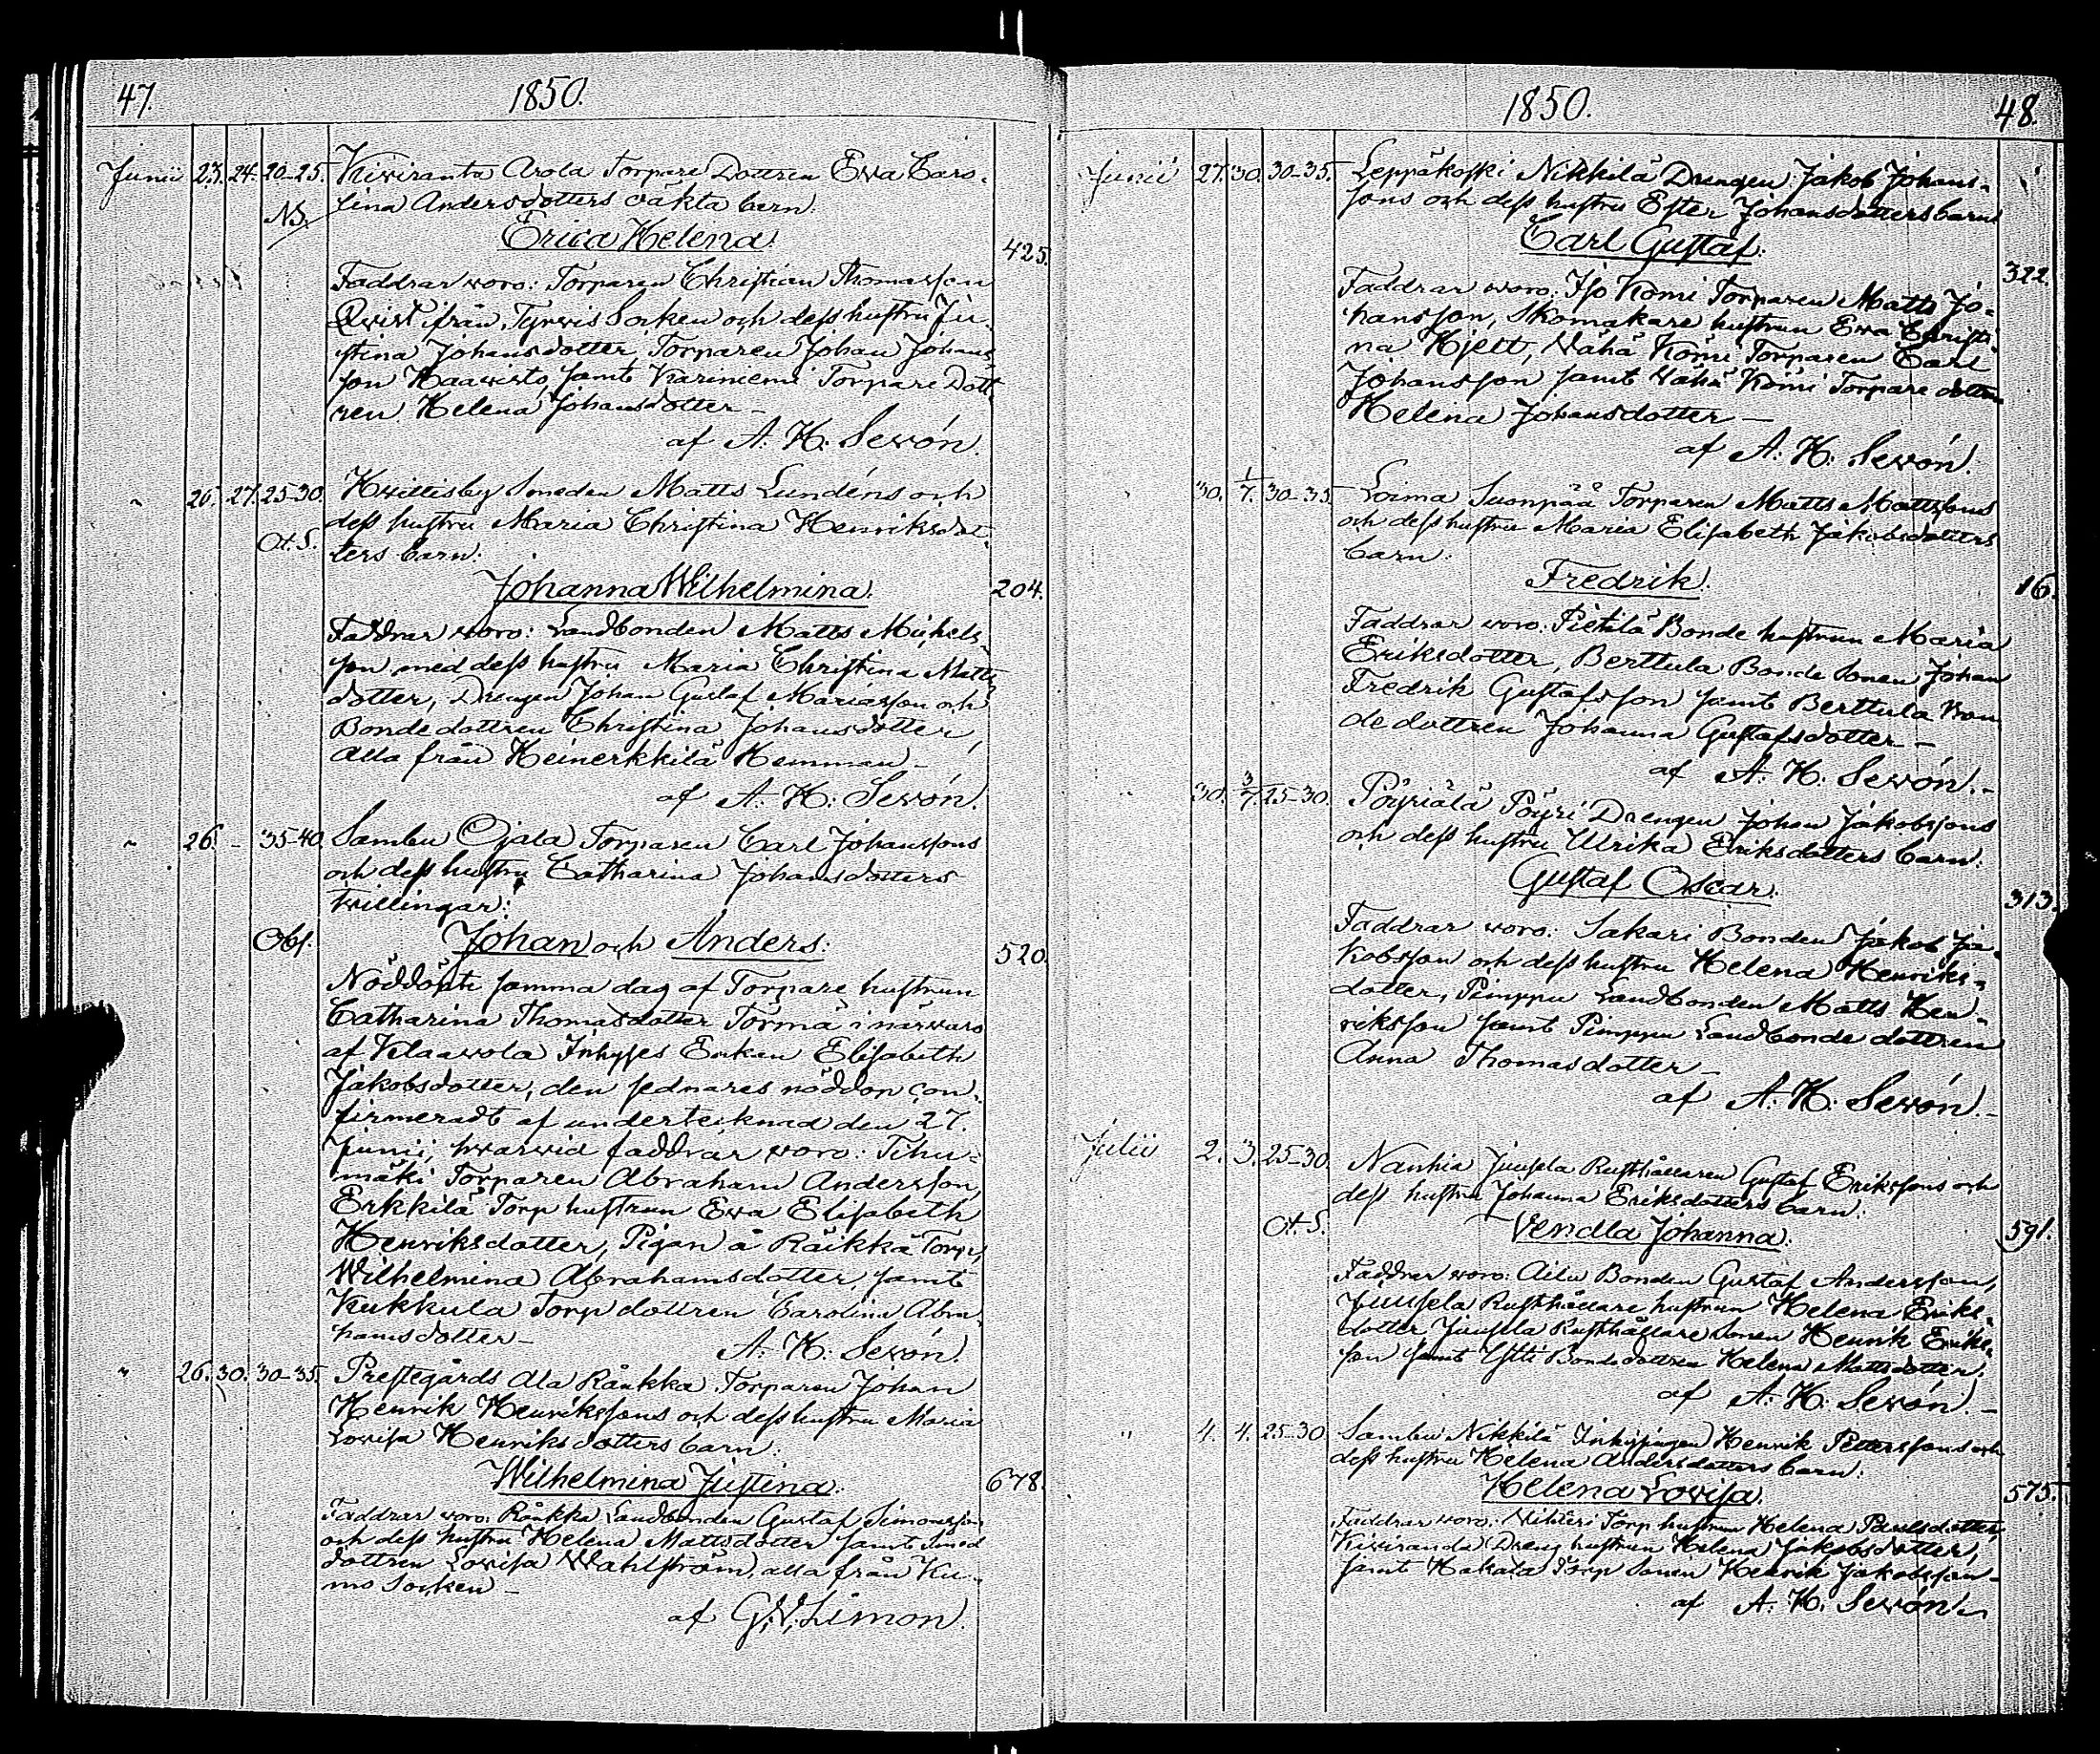 47. 1850.
Junii 23. 24. 20-25. Kiviranta Arola Torpare Dottren Ewa Caro-
NB. lina Andersdotters oäkta barn:
Erica Helena. 425.
Faddrar woro: Torparen Christian Thomasson
Qvist ifrån Tyrwis Socken och dess hustru Ju-
stina Johansdotter, Torparen Johan Johans
son Haawisto, samt Kariniemi Torpare Dott
ren Helena Johansdotter –
af A. H. Sewón.
" 26. 27. 25-30. Kwittisby Smeden Matts Lundéns och
dess hustru Maria Christina Henriksdot-
At. S. ters barn:
Johanna Wilhelmina. 204.
Faddrar woro: Landbonden Matts Michels
son med dess hustru Maria Christina Matts
dotter, Drengen Johan Gustaf Mariasson och
Bonde dottren Christina Johansdotter,
alla från Heinerkkilä Hemman –
af A. H. Sewón.
" 26. – 35-40. Sambu Ojala Torparen Carl Johanssons
och dess hustru Catharina Johansdotters
twillingar:
Obs. Johan och Anders: 520.
Nöddöpte samma dag af Torpare hustrun
Catharina Thomasdotter Törmä i närwaro
af Kelaawola Inhyses Enkan Elisabeth
Jakobsdotter, den sednares nöddop con-
firmeradt af undertecknad den 27.
Junii, hwarwid faddrar woro: Tihu-
mäki Torparen Abraham Andersson,
Erkkilä Torp hustrun Ewa Elisabeth
Henriksdotter, Pigan å Räikkä Torp,
Wilhelmina Abrahamsdotter, samt
Kukkula Torp dottren Carolina Abra-
hamsdotter –
A. H. Sewón.
" 26. 30. 30-35. Prestegårds Ala Rånkka Torparen Johan
Henrik Henrikssons och dess hustru Maria
Lovisa Henriksdotters barn:
Wilhelmina Justina. 678.
Faddrar woro: Rånkka Landbonden Gustaf Simonsson
och dess hustru Helena Mattsdotter samt Smed
dottren Lovisa Wahlström, alla från Ku-
mo Socken –
af G. W. Limon.
1850. 48.
Junii 27. 30. 30-35. Leppäkoski Nikkilä Drengen Jakob Johans-
sons och dess hustru Ester Johansdotters barn
Carl Gustaf. 322.
Faddrar woro: Iso Kömi Torparen Matts Jo-
hansson, Skomakare hustrun Ewa Christi-
na Hjelt, Vähä Kömi Torparen Carl
Johansson samt Vähä Kömi Torpare dottren
Helena Johansdotter –
af A. H. Sewón.
30. 1/7. 30-35. Loima Suonpää Torparen Matts Mattssons
och dess hustru Maria Elisabeth Jakobsdotters
barn:
Fredrik. 16.
Faddrar woro: Pietilä Bonde hustrun Maria
Eriksdotter, Berttula Bonde Sonen Johan
Fredrik Gustafsson samt Berttula Bon
de dottren Johanna Gustafsdotter –
af A. H. Sewón. –
" 30. 3/7. 25-30. Pöyriälä Pöyri Drengen Johan Jakobssons
och dess hustru Ulrika Eriksdotters barn:
Gustaf Oscar. 313.
Faddrar woro: Sakari Bonden Jakob Ja-
kobsson och dess hustru Helena Henriks-
dotter, Pimppu Landbonden Matts Hen-
riksson samt Pimppu Landbonde dottren
Anna Thomasdotter –
af A. H. Sewón. –
Julii 2. 3. 25-30. Nanhia Juusela Rusthållaren Gustaf Erikssons och
dess hustru Johanna Eriksdotters barn:
At. S. Vendla Johanna. 591.
Faddrar woro: Ailu Bonden Gustaf Andersson,
Juusela Rusthållare hustrun Helena Eriks-
dotter, Juusela Rusthållare Sonen Henrik Eriks-
son samt Bonde dottren Helena Mattsdotter.
af A. H. Sewón. –
" 4. 4. 25-30. Sambu Nikkilä Inhysingen Henrik Petterssons och
dess hustru Helena Andersdotters barn:
Helena Lovisa. 575.
Faddrar woro: Torp hustrun Helena Paulsdotter,
Kiviranda Dreng hustrun Helena Jakobsdotter,
samt Hakala Torp Sonen Henrik Jakobsson –
af A. H. Sewón.